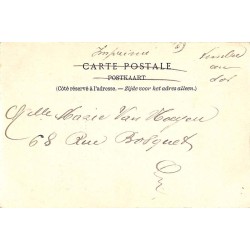 Imprimé
CARTE POSTALE
POSTKAART
(Côté réservé à l'adresse. – Zijde voor het adres alleen.)
Melle Marie Van
68 Rue Bosquet